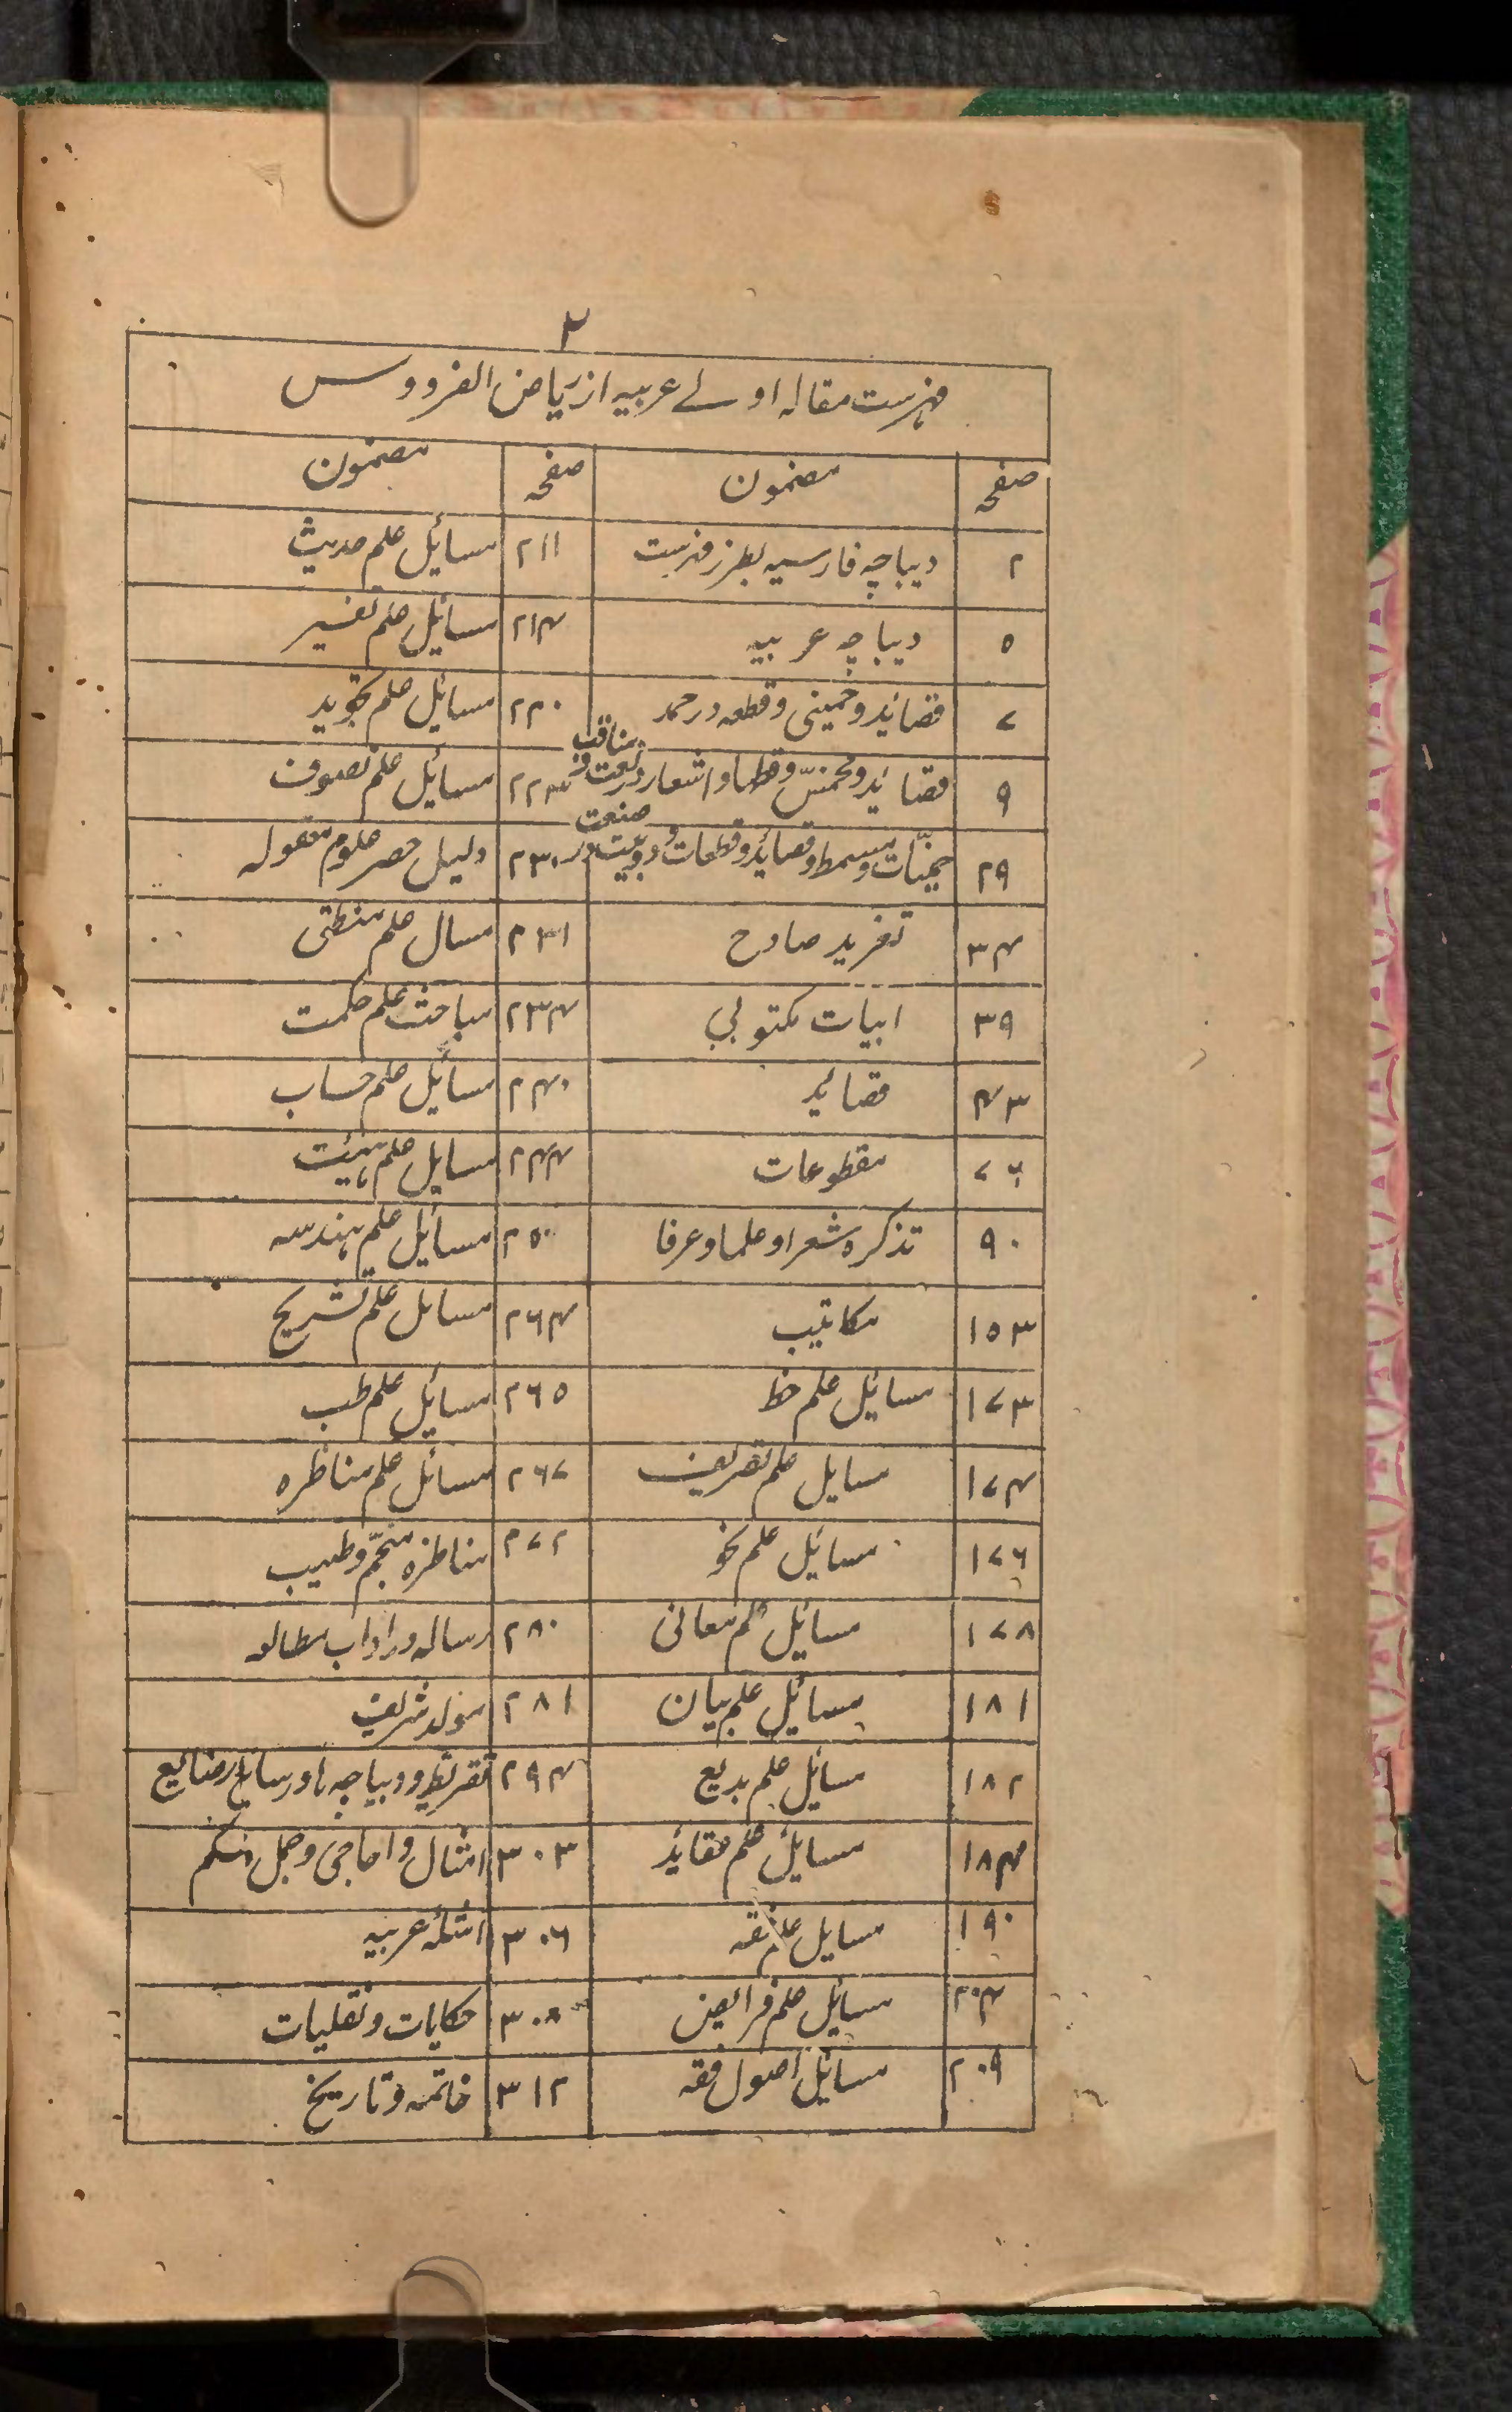 ۲
فہرست مقالہ اولے عربیہ از ریاض الفردوس
صفحہ مضمون صفحہ مضمون
۲ دیباچہ فارسیہ بطرز فہرست ۲۱۱ مسائل علم حدیث
۵ دیباچہ عربیہ ۲۱۴ مسائل علم تفسیر
۷ قصائد و خمینی و قطعہ در حمد ۲۲۰ مسائل علم تجوید
۹ قصائد و مخمس و قطہا و اشعار در نعت و مناقب ۲۲۳ مسائل علم تصوف
۲۹ و مسمط و قصائد و قطعات و دوبیت در صنعت ۲۳۰ دلیل حصر علوم معقولہ
۳۴ تغرید صادح ۲۳۱ مسال علم منطق
۳۹ ابیات مکتوبی ۲۳۴ مباحث علم حکمت
۴۳ قصائد ۲۴۰ مسائل علم حساب
۷۶ مقطوعات ۲۴۴ مسایل علم ہیئت
۹۰ تذکرہ شعرا و علما و عرفا ۲۵۰ مسائل علم ہندسہ
۱۵۳ مکاتیب ۲۶۴ مسایل علم تشریح
۱۷۳ مسائل علم خط ۲۶۵ مسائل علم طب
۱۷۴ مسایل علم تصریف ۲۶۷ مسائل علم مناظرہ
۱۷۶ مسائل علم نحو ۲۷۲ مناظرہ منجم و طبیب
۱۷۸ مسائل علم معانی ۲۸۰ رسالہ در اداب مطالعہ
۱۸۱ مسائل علم بیان ۲۸۱ مولد شریف
۱۸۲ مسائل علم بدیع ۲۹۴ تقریظ و دیباچہ ہا و رسایل صنایع
۱۸۴ مسایل علم عقاید ۳۰۳ امثال و احاجی و جمل حکم
۱۹۰ مسایل علم فقہ ۳۰۶ امثلہ عربیہ
۲۰۴ مسائل علم فرائض ۳۰۸ حکایات و نقلیات
۲۰۹ مسائل اصول فقہ ۳۱۲ خاتمہ و تاریخ